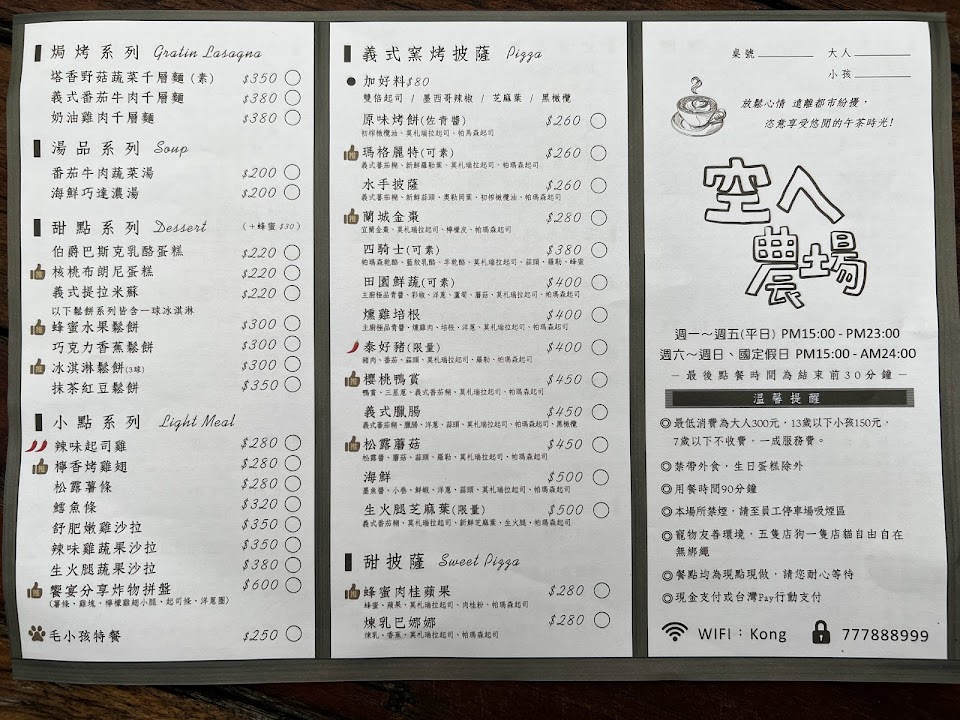 焗烤系列 Gratin Lasagna
塔香野菇蔬菜千層麵(素) $350
義式番茄牛肉千層麵 $380
奶油雞肉千層麵 $380
湯品系列 Soup
番茄牛肉蔬菜湯 $200
海鮮巧達濃湯 $200
甜點系列 Dessert (+蜂蜜$30)
伯爵巴斯克乳酪蛋糕 $220
推 核桃布朗尼蛋糕 $220
義式提拉米蘇 $220
以下鬆餅系列皆含一球冰淇淋
推 蜂蜜水果鬆餅 $300
巧克力香蕉鬆餅 $300
推 冰淇淋鬆餅(3球) $300
抹茶紅豆鬆餅 $350
小點系列 Light Meal
辣味起司雞 $280
推 檸香烤雞翅 $280
松露薯條 $280
鱈魚條 $320
舒肥嫩雞沙拉 $350
辣味雞蔬果沙拉 $350
生火腿蔬果沙拉 $380
推 饗宴分享炸物拼盤 $600
(薯條、雞塊、檸檬雞翅小腿、起司條、洋蔥圈)
毛小孩特餐 $250
義式窯烤披薩 Pizza
● 加好料$80
雙倍起司 / 墨西哥辣椒 / 芝麻葉 / 黑橄欖
原味烤餅(佐青醬) $260
初榨橄欖油、莫札瑞拉起司、帕馬森起司
推 瑪格麗特(可素) $260
義式番茄糊、新鮮羅勒葉、莫札瑞拉起司、帕瑪森起司
水手披薩 $260
義式番茄糊、新鮮蒜頭、奧勒岡葉、初榨橄欖油、帕瑪森起司
推 蘭城金棗 $280
宜蘭金棗、莫札瑞拉起司、檸檬皮、帕瑪森起司
四騎士(可素) $380
帕瑪森乾酪、藍紋乳酪、羊乾酪、莫札瑞拉起司、蒜頭、羅勒、蜂蜜
田園鮮蔬(可素) $400
主廚極品青醬、彩椒、洋蔥、蘆筍、蘑菇、莫札瑞拉起司、帕瑪森起司
燻雞培根 $400
主廚極品青醬、燻雞肉、培根、洋蔥、莫札瑞拉起司、帕瑪森起司
泰好豬(限量) $400
豬肉、番茄、蒜頭、莫札瑞拉起司、羅勒、帕瑪森起司
推 櫻桃鴨賞 $450
鴨賞、三星蔥、義式番茄糊、莫札瑞拉起司、帕瑪森起司
義式臘腸 $450
義式番茄糊、臘腸、洋蔥、蒜頭、莫札瑞拉起司、帕瑪森起司、黑橄欖
推 松露蘑菇 $450
松露醬、蘑菇、蒜頭、羅勒、莫札瑞拉起司、帕瑪森起司
海鮮 $500
墨魚醬、小卷、鮮蝦、洋蔥、蒜頭、莫札瑞拉起司、帕瑪森起司
生火腿芝麻葉(限量) $500
義式番茄糊、莫札瑞拉起司、新鮮芝麻葉、生火腿、帕瑪森起司
甜披薩 Sweet Pizza
推 蜂蜜肉桂蘋果 $280
蜂蜜、蘋果、莫札瑞拉起司、肉桂粉、帕瑪森起司
煉乳巴娜娜 $280
煉乳、香蕉、莫札瑞拉起司、帕瑪森起司
桌號 大人
小孩
放鬆心情 遠離都市紛擾，
恣意享受悠閒的午茶時光!
空ㄟ
農場
週一～週五(平日) PM15:00 - PM23:00
週六～週日、國定假日 PM15:00 - AM24:00
－最後點餐時間為結束前30分鐘－
溫馨提醒
◎最低消費為大人300元，13歲以下小孩150元，
7歲以下不收費，一成服務費。
◎禁帶外食，生日蛋糕除外
◎用餐時間90分鐘
◎本場所禁煙，請至員工停車場吸煙區
◎寵物友善環境，五隻店狗一隻店貓自由自在
無綁繩
◎餐點均為現點現做，請您耐心等待
◎現金支付或台灣Pay行動支付
WIFI：Kong 777888999